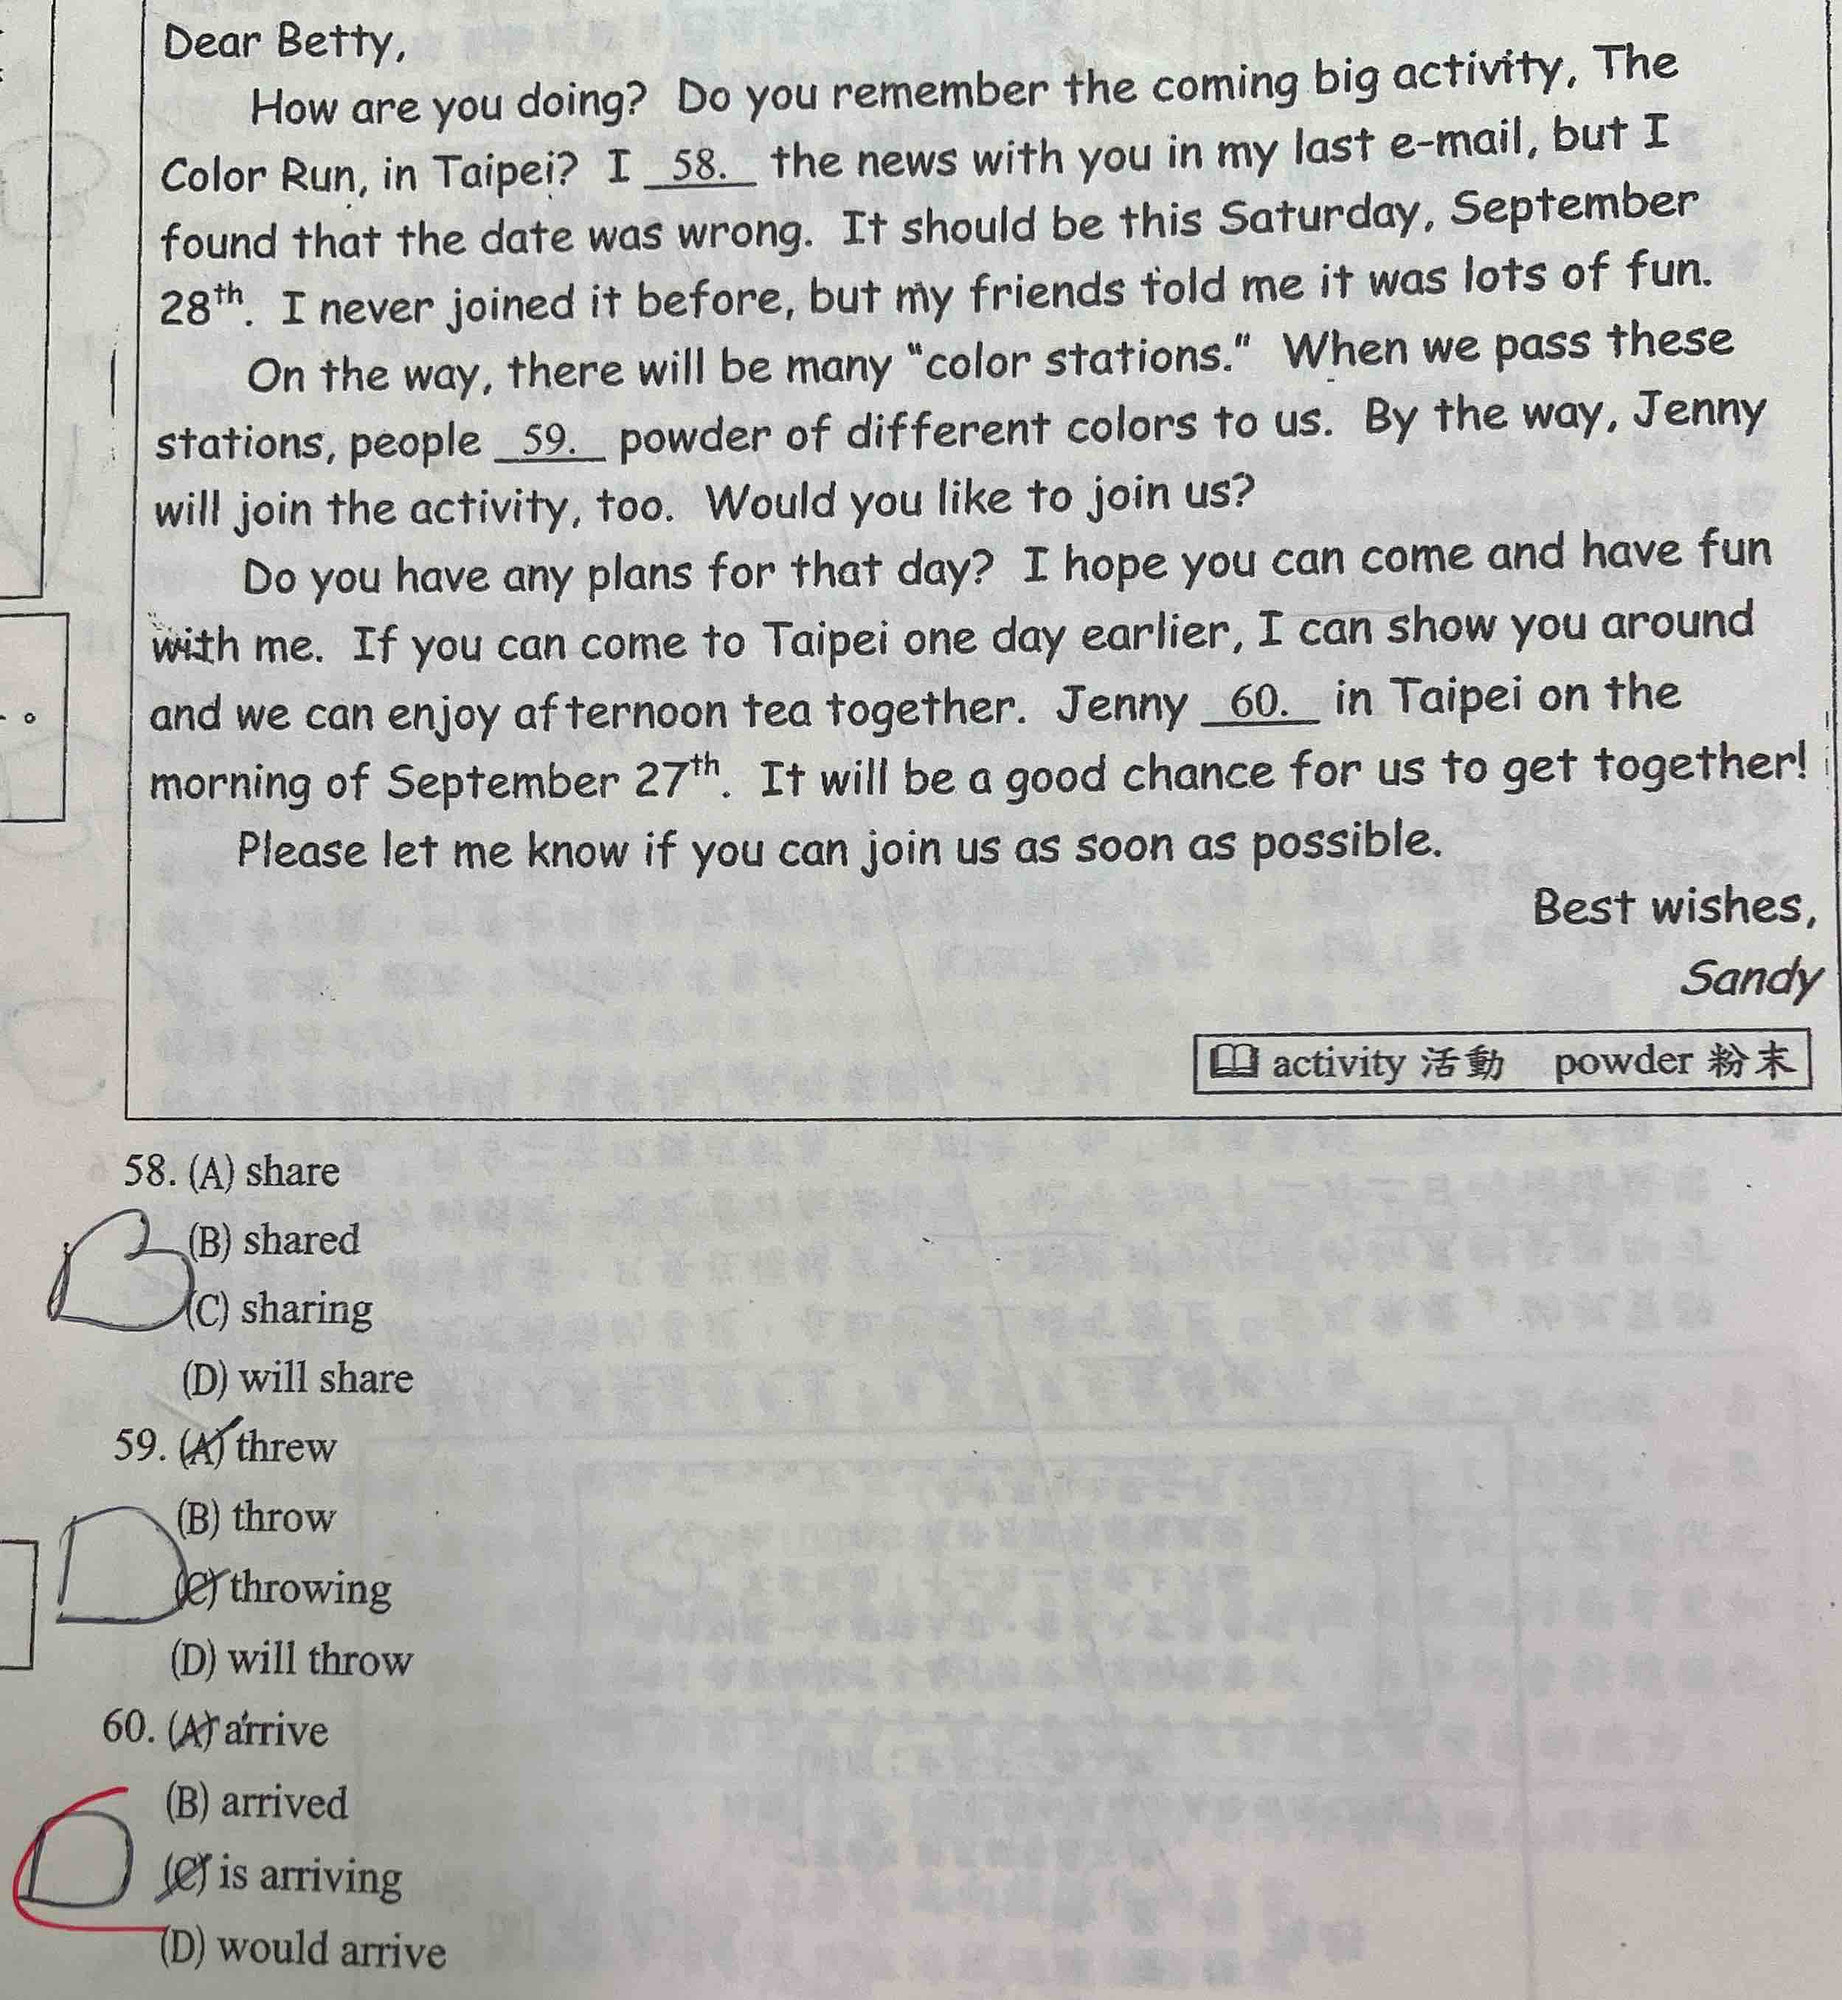 Dear Betty,
How are you doing? Do you remember the coming big activity, The
Color Run, in Taipei? I 58. the news with you in my last e-mail, but I
found that the date was wrong. It should be this Saturday, September
28th. I never joined it before, but my friends told me it was lots of fun.
On the way, there will be many "color stations." When we pass these
stations, people 59. powder of different colors to us. By the way, Jenny
will join the activity, too. Would you like to join us?
Do you have any plans for that day? I hope you can come and have fun
with me. If you can come to Taipei one day earlier, I can show you around
and we can enjoy afternoon tea together. Jenny 60. in Taipei on the
morning of September 27th. It will be a good chance for us to get together!
Please let me know if you can join us as soon as possible.
Best wishes,
Sandy
activity 活動 powder 粉末
58. (A) share
(B) shared
(C) sharing
(D) will share
59. (A) threw
(B) throw
(C) throwing
(D) will throw
60. (A) arrive
(B) arrived
(C) is arriving
(D) would arrive